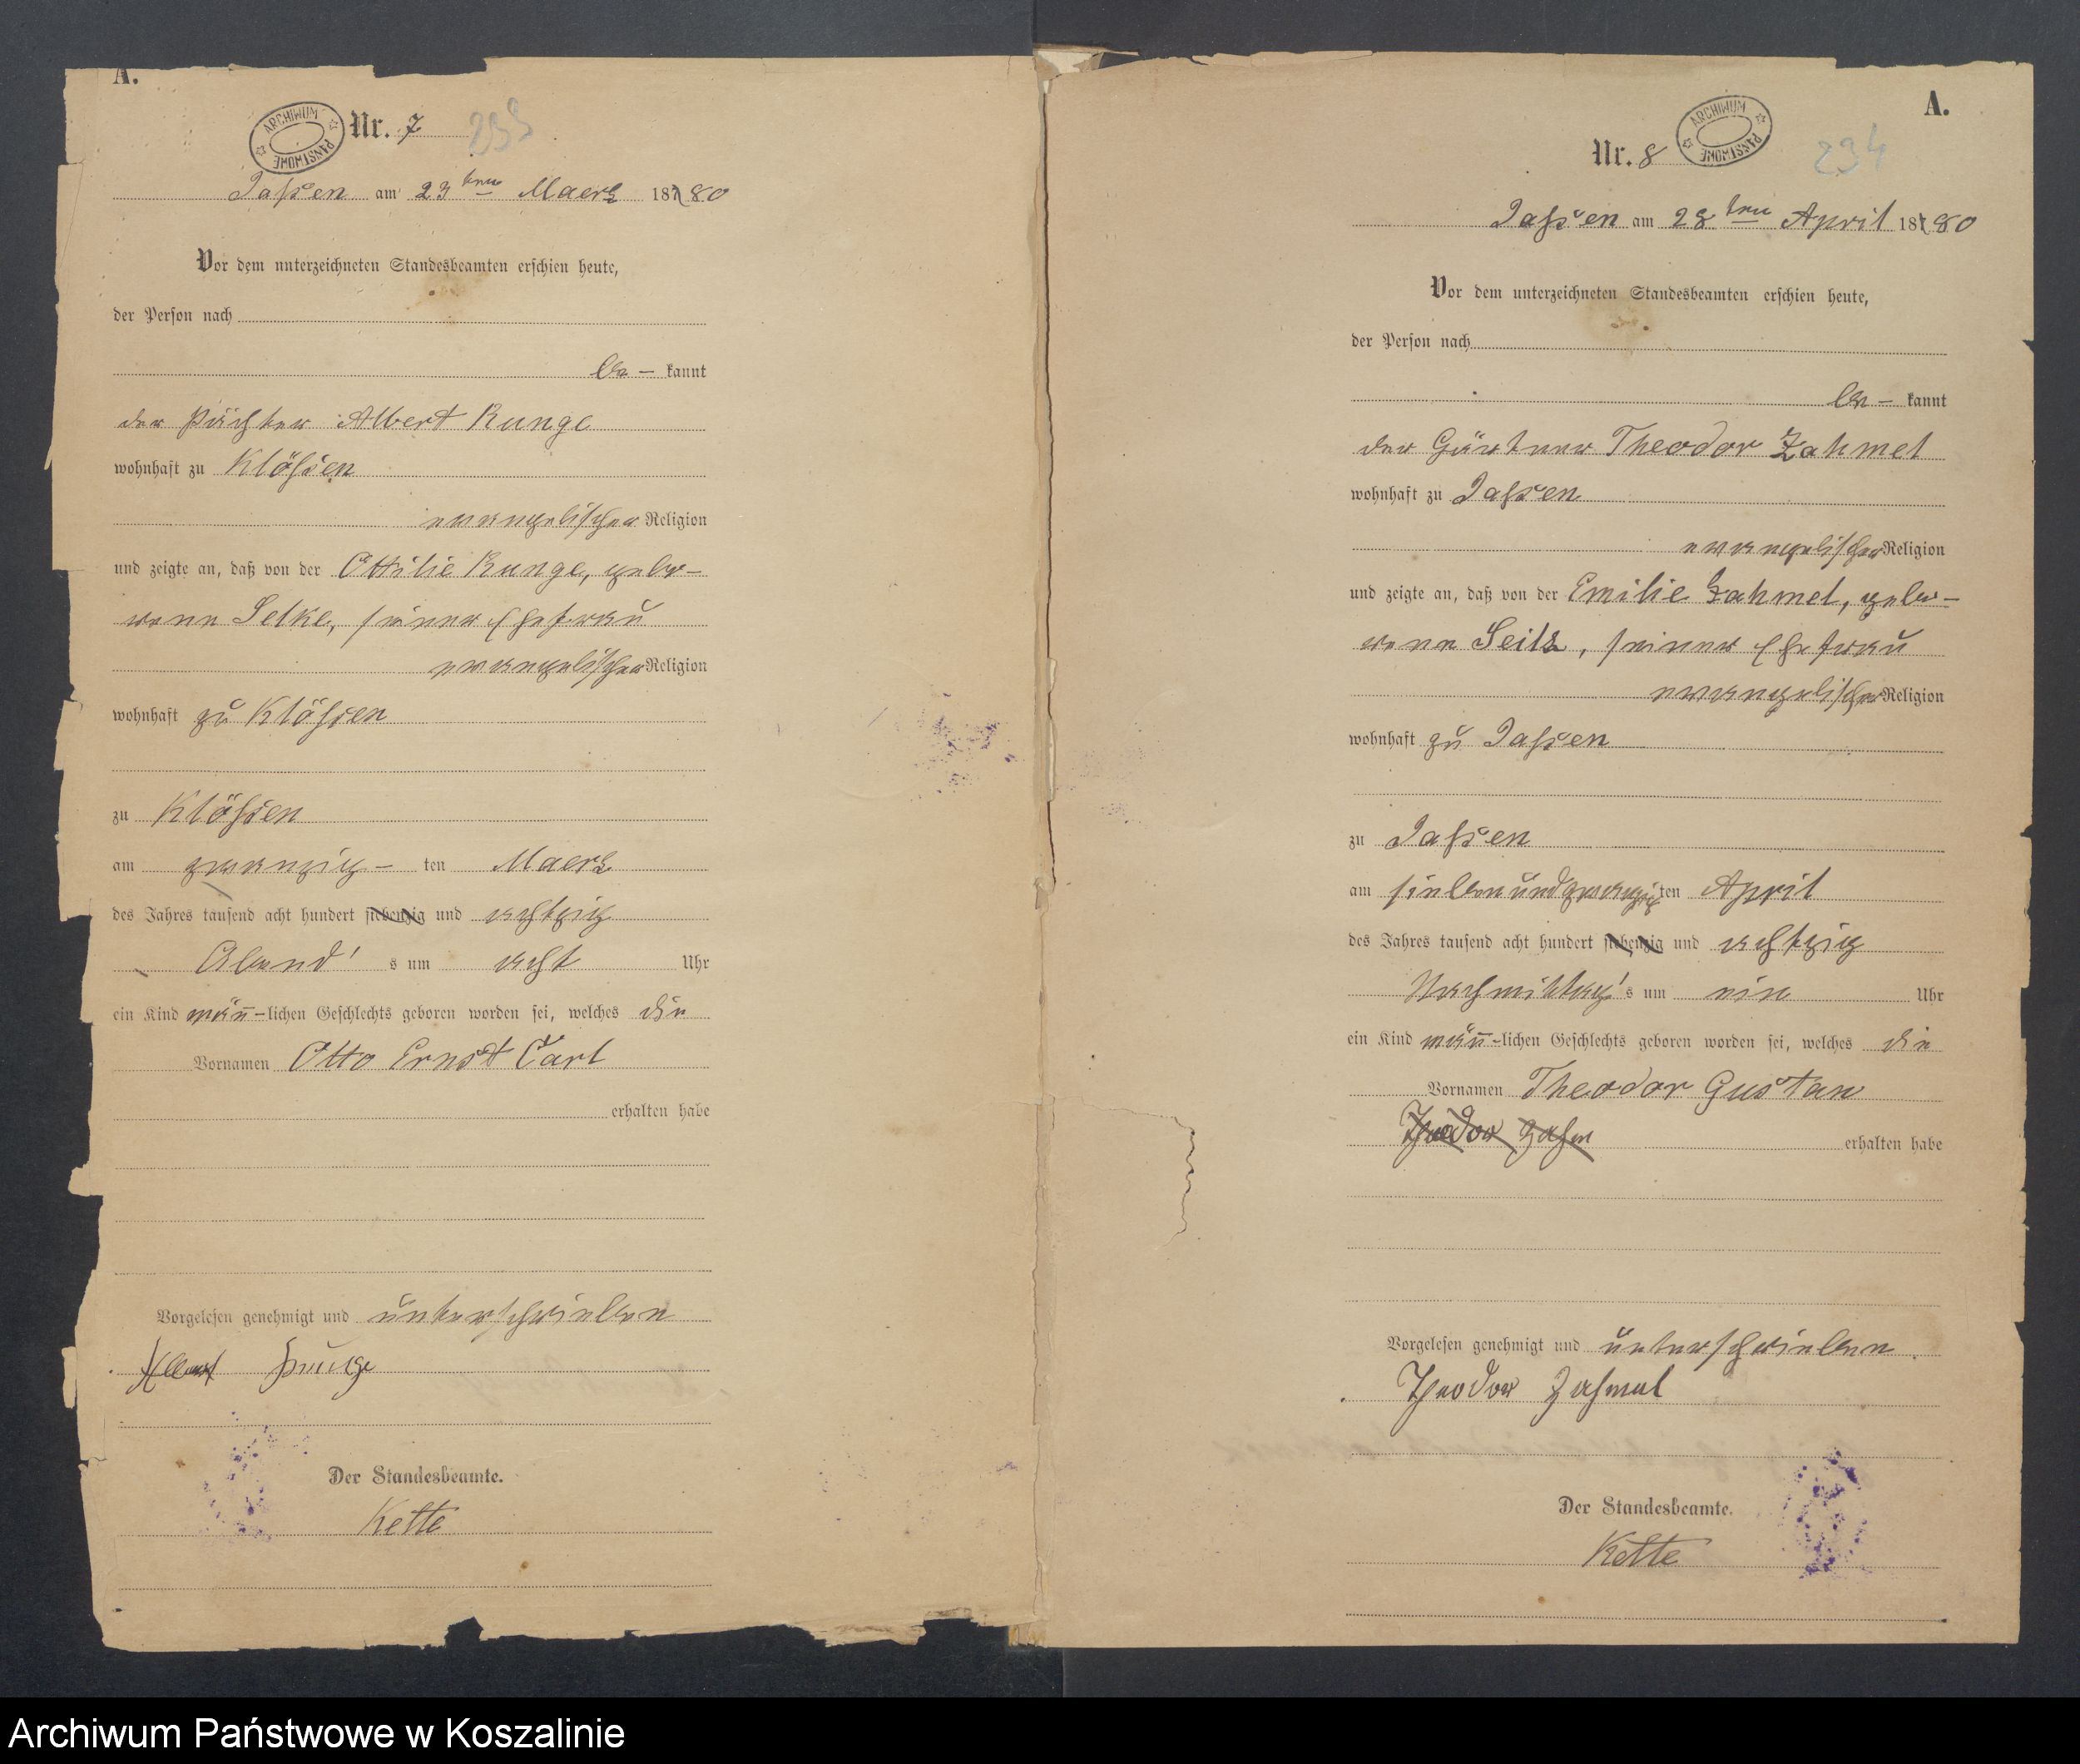 A.
ARCHIWUM PAŃSTWOWE
Nr. 7
233
Jassen am 23ten Maerz 187 80
Vor dem unterzeichneten Standesbeamten erschien heute,
der Person nach
be- kannt
der Pächter Albert Runge
wohnhaft zu Klössen
evangelischer Religion
und zeigte an, daß von der Ottilie Runge, gebo-
rene Selke, seiner Ehefrau
evangelischer Religion
wohnhaft zu Klössen
zu Klössen
am zwanzig- ten Maerz
des Jahres tausend acht hundert siebenzig und achtzig
Abend' s um acht Uhr
ein Kind män̄-lichen Geschlechts geboren worden sei, welches die
Vornamen Otto Ernst Carl
erhalten habe
Vorgelesen genehmigt und unterschrieben
Albert Runge
Der Standesbeamte.
Kette
A.
Nr. 8
ARCHIWUM PAŃSTWOWE
234
Jassen am 28ten April 187 80
Vor dem unterzeichneten Standesbeamten erschien heute,
der Person nach
be- kannt
der Gärtner Theodor Zahmel
wohnhaft zu Jassen
evangelischer Religion
und zeigte an, daß von der Emilie Zahmel, gebo-
rene Seilz, seiner Ehefrau
evangelischer Religion
wohnhaft zu Jassen
zu Jassen
am siebenundzwanzigten April
des Jahres tausend acht hundert siebenzig und achtzig
Nachmittag's um ein Uhr
ein Kind män̄-lichen Geschlechts geboren worden sei, welches die
Vornamen Theodor Gustav
Theodor Zahm erhalten habe
Vorgelesen genehmigt und unterschrieben
Theodor Zahmel
Der Standesbeamte.
Kette
Archiwum Państwowe w Koszalinie